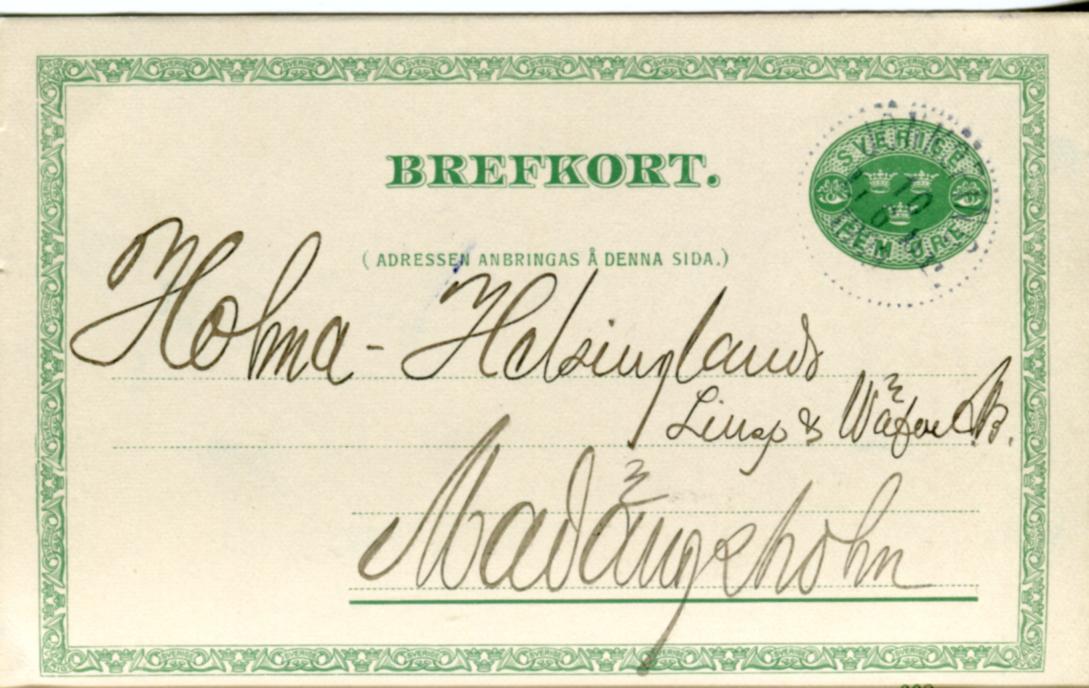 BREFKORT.
SVERIGE
FEM ÖRE
(ADRESSEN ANBRINGAS Å DENNA SIDA.)
Holma-Helsinglands
Linsp & Wäfveri AB.